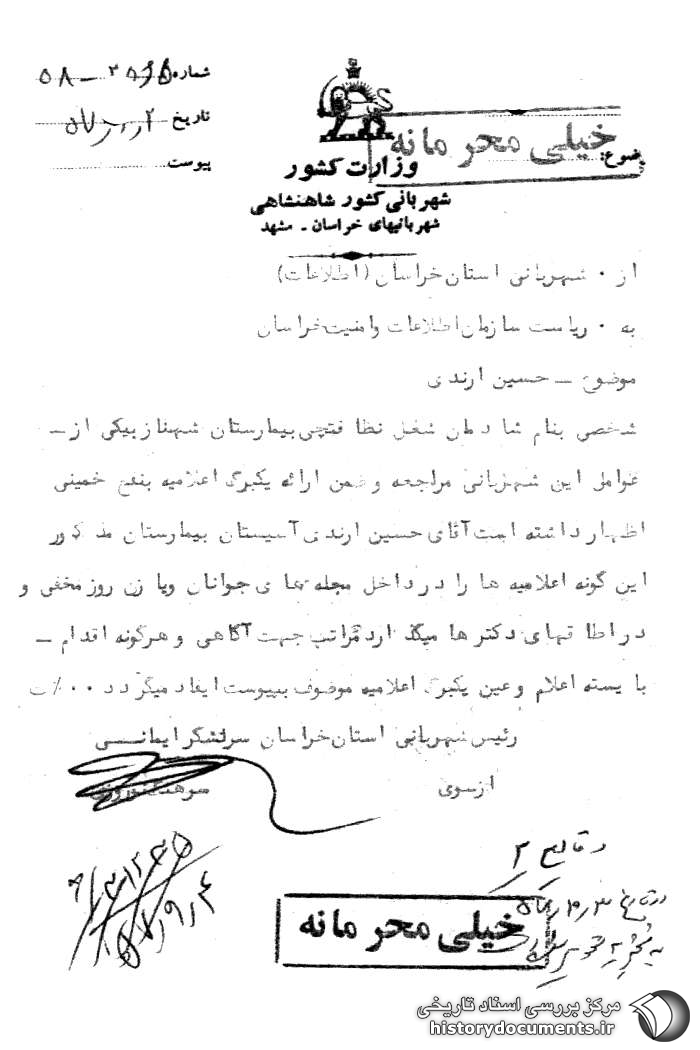 شماره
تاریخ
پیوست
خیلی محرمانه
وزارت کشور
شهربانی کشور شاهنشاهی
شهربانیهای خراسان ـ مشهد
از ۰ شهربانی استان خراسان (اطلاعات)
به ۰ ریاست سازمان اطلاعات وامنیت خراسان
موضوع ـ حسین ارندی
شخصی بنام شغل نظافتچی بیمارستان شهناز بیکی از ـ
عوامل این شهربانی مراجعه و ضمن ارائه یکبرگ اعلامیه بنفع خمینی
اظهار داشته است آقای حسین ارندی آسیستان بیمارستان مذکور
این گونه اعلامیه ها را در داخل مجله های جوانان ویا زن روز مخفی و
در اطاقهای دکترها میگذارد مراتب جهت آگاهی و هرگونه اقدام ـ
بایسته اعلام و عین یکبرگ اعلامیه موضوف بپیوست ایفاد میگردد
رئیس شهربانی استان خراسان سرلشگر
از سوی سرهنگ نوروزی
وقایع ۲
خیلی محرمانه
مرکز بررسی اسناد تاریخی
historydocuments.ir